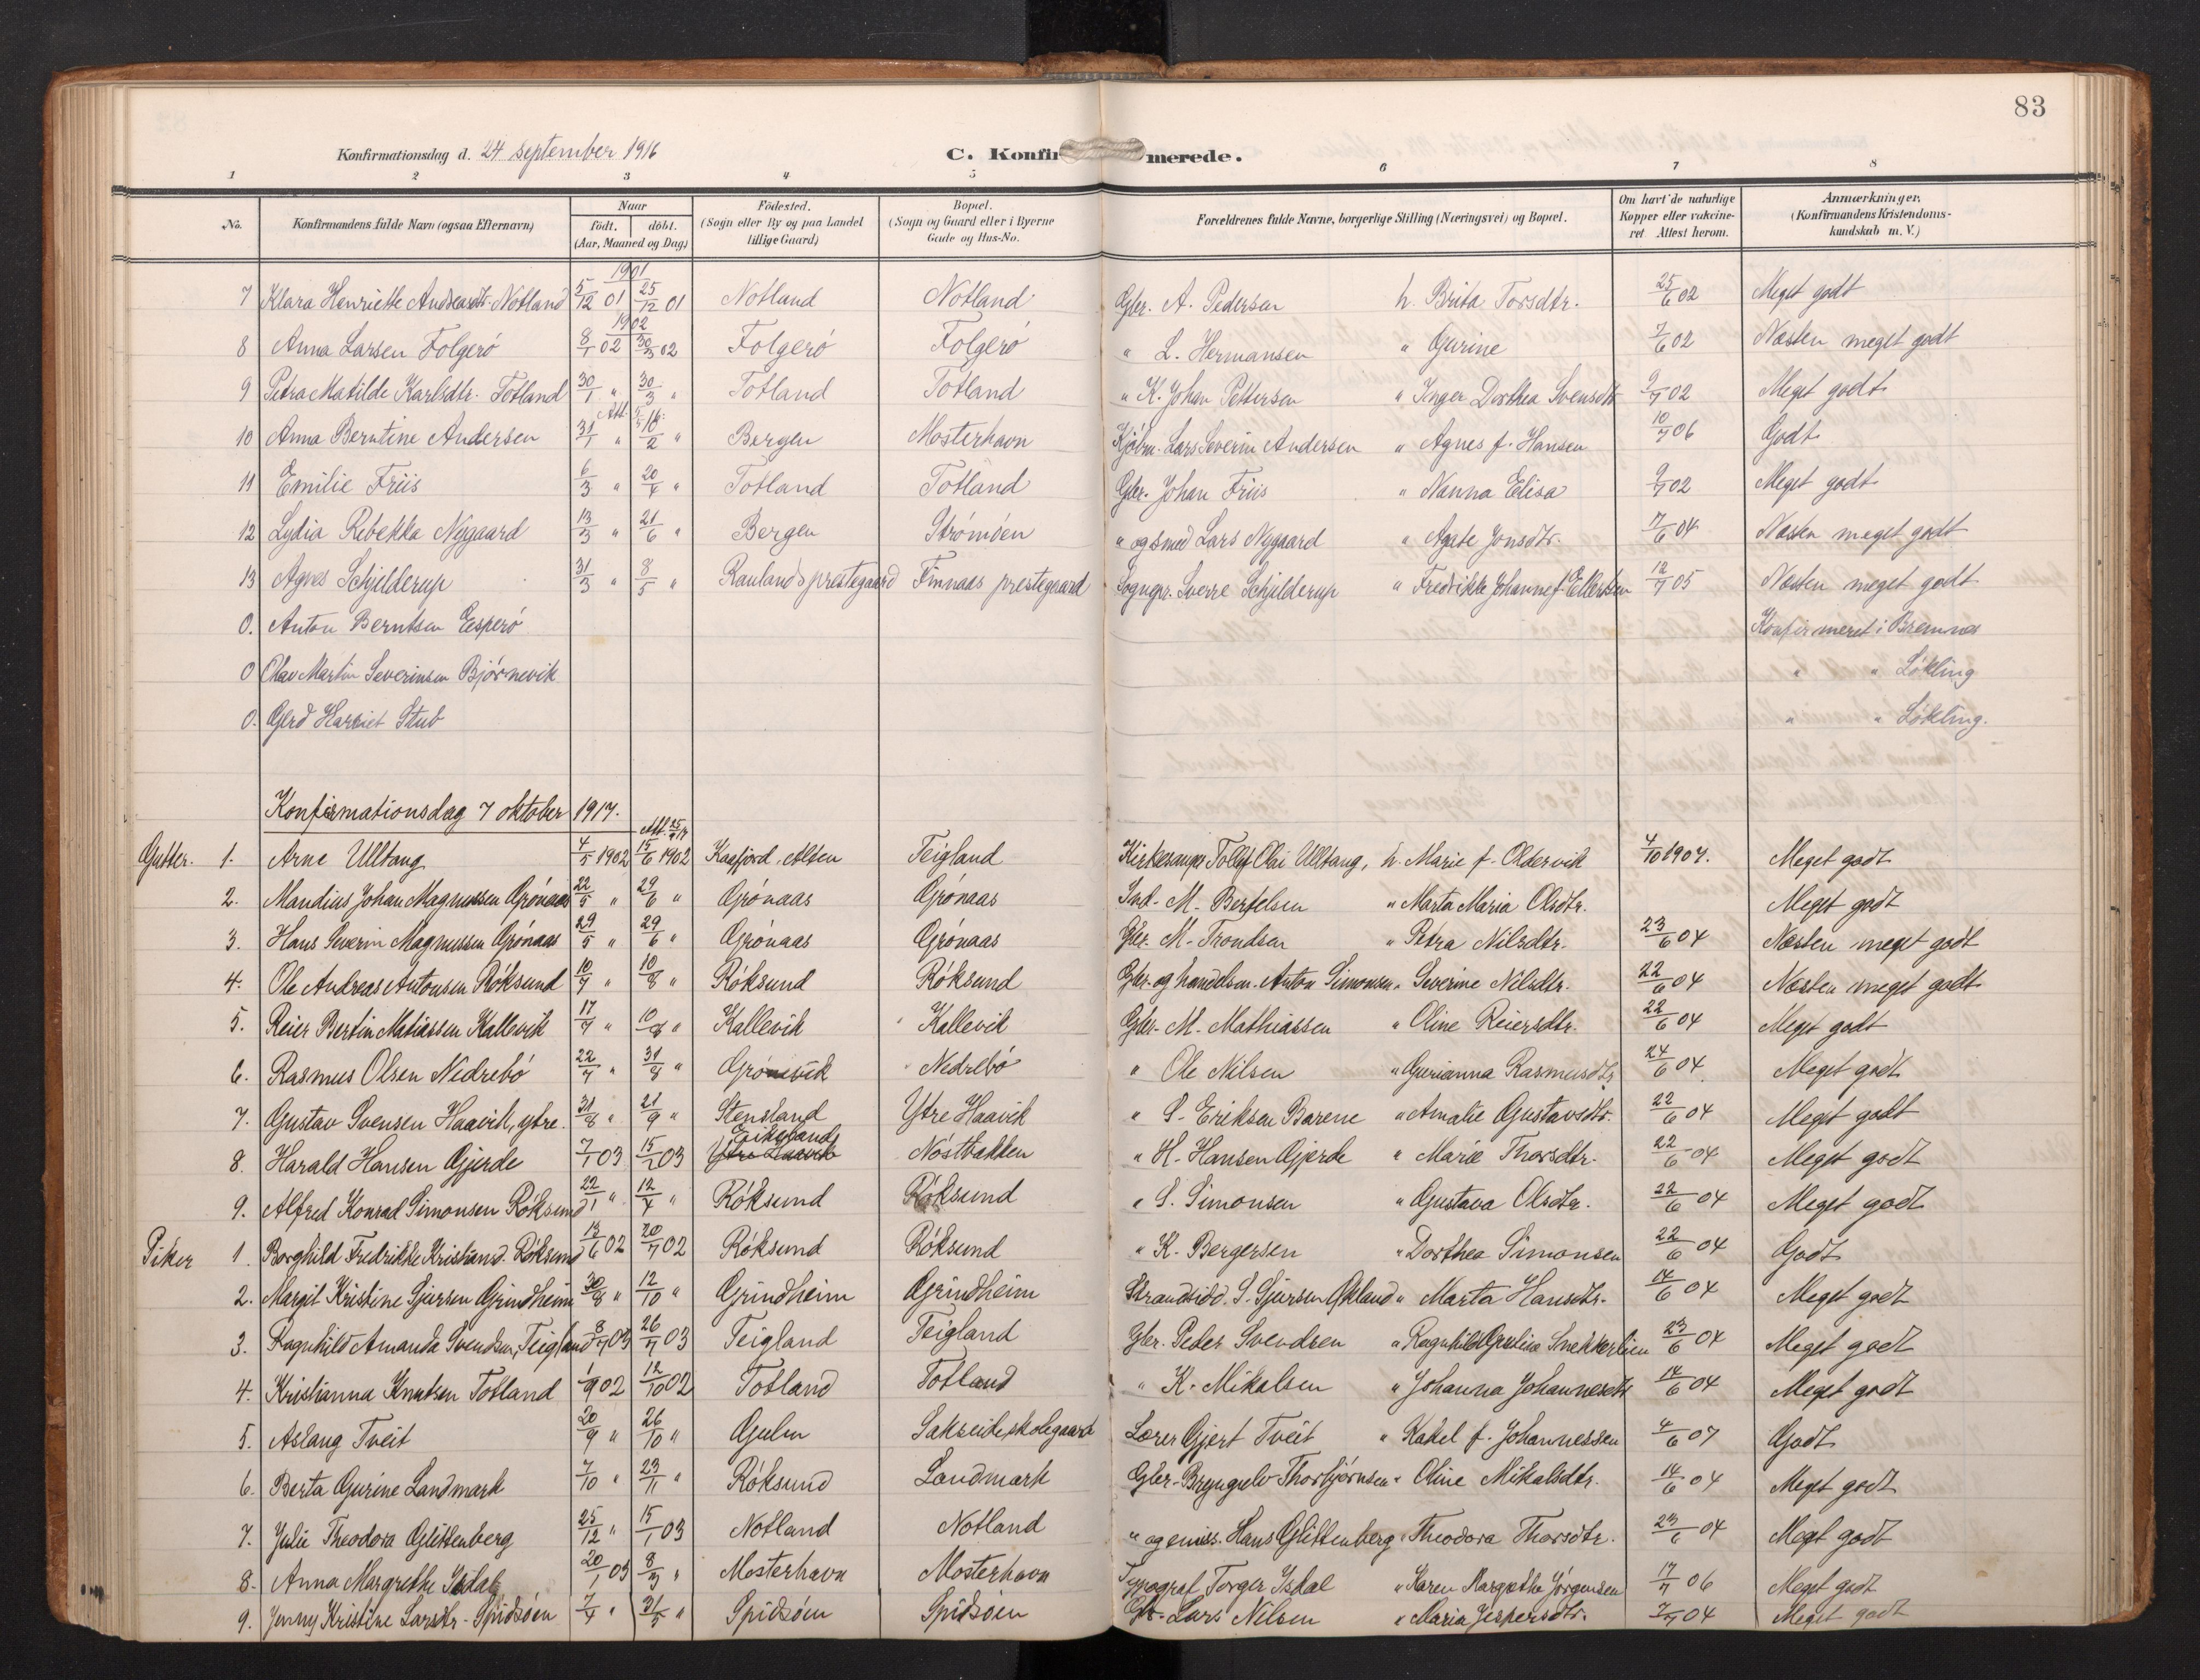 83
Konfirmationsdag d. 24 september 1916 C. Konfirmerede.
1 2 3 4 5 6 7 8
No. Konfirmandens fulde Navn (ogsaa Efternavn) Naar født. døbt. (Aar, Maaned og Dag) Fødested. (Sogn eller By og paa Landet tillige Gaard) Bopæl. (Sogn og Gaard eller i Byerne Gade og Hus-No. Forældrenes fulde Navne, borgerlige Stilling (Næringsvei) og Bopæl. Om havt de naturlige Kopper eller vakcineret. Attest herom. Anmærkninger, (Konfirmandens Kristendomskundskab m. V.)
1901
7 Klara Henriette Andreasdtr. Notland 5/12 01 25/12 01 Notland Notland Gbr. A. Pedersen h. Brita Torsdtr. 25/6 02 Meget godt
1902
8 Anna Larsen Folgerö 8/1 02 30/3 02 Folgerö Folgerö " L. Hermansen " Gurine 7/6 02 Næsten meget godt
9 Petra Matilde Karlsdtr. Totland 30/1 " 30/3 " Totland Totland " K. Johan Pettersen " Inger Dorthea Svensdtr 9/7 02 Meget godt
10 Anna Berntine Andersen 31/1 " 16/2 " Bergen Mosterhavn Kjöbm. Lars Severin Andersen " Agnes f. Hansen 10/7 06 Godt
11 Emilie Friis 6/3 " 20/4 " Totland Totland Gbr. Johan Friis " Nanna Elisa 9/7 02 Meget godt
12 Lydia Rebekka Nygaard 13/3 " 21/6 " Bergen Strömöen " og smed Lars Nygaard " Agate Jonsdtr. 7/6 04 Næsten meget godt
13 Agnes Schjelderup 31/3 " 8/5 " Raulands prestegaard Finnaas prestegaard Sognpr. Sverre Schjelderup " Fredrikke Johanne f. Ellertsen 12/7 05 Næsten meget godt
0. Anton Berntsen Eesperö Konfirmeret i Bremnes
0 Olav Martin Severinsen Björnevik " " Løkling
0. Gerd Harriet Stub " " Løkling.
Konfirmationsdag 7 oktober 1917.
Att. 25/9 17
Gutter. 1. Arne Ulltang 4/5 1902 15/6 1902 Kaafjord, Alten Teigland Kirkesanger Tollef Olai Ulltang, h. Marie f. Oldervik 4/10 1907. Meget godt
2. Mandius Johan Magnussen Grönaas 22/5 " 29/6 " Grönaas Grönaas Ind. M. Bertelsen " Marta Maria Olsdtr. Meget godt
3. Hans Severin Magnussen Grönaas 29/5 " 29/6 " Grönaas Grönaas Gbr. M. Trondsen " Petra Nilsdtr. 23/6 04 Næsten meget godt
4. Ole Andreas Antonsen Röksund 10/7 " 10/8 " Röksund Röksund Gbr. og handelsm. Anton Simonsen " Severine Nilsdtr. 22/6 04 Næsten meget godt
5. Reier Bertin Matiassen Kallevik 17/7 " 10/8 " Kallevik Kallevik Gbr. M. Mathiassen " Oline Reiersdtr. 22/6 04 Meget godt
6. Rasmus Olsen Nedrebö 22/7 " 31/8 " Grönevik Nedrebö " Ole Nilsen " Gurianna Rasmusdtr 24/6 04 Meget godt
7. Gustav Svensen Haavik, ytre. 31/8 " 21/9 " Stensland Ytre Haavik " S. Eriksen Barene " Amalie Gustavsdtr. 22/6 04 Meget godt
8. Harald Hansen Gjerde 7/1 03 15/2 03 Eikeland Ytre Haavik Nöstbakken " H. Hansen Gjerde " Marie Thorsdtr. 22/6 04 Meget godt
9. Alfred Konrad Simonsen Röksund 22/1 " 12/4 " Röksund Röksund " S. Simonsen " Gustava Olsdtr. 22/6 04 Meget godt
Piker 1. Borghild Fredrikke Kristians. Röksund 12/6 02 20/7 02 Röksund Röksund " K. Bergersen " Dorthea Simonsen 22/6 04 Godt
2. Margit Kristine Sjursen Grindheim 30/8 " 12/10 " Grindheim Grindheim Strandsidd. S. Sjursen Økland " Marta Hansdtr. 14/6 04 Meget godt
3. Ragnhild Amanda Svendsen, Teigland 8/7 03 26/7 03 Teigland Teigland Gbr. Peder Svendsen " Ragnhild Guline Snekkerlien 23/6 04 Meget godt
4. Kristianna Knutsen Totland 1/9 02 12/10 02 Totland Totland " K. Mikalsen " Johanna Johannesdtr 14/6 04 Meget godt
5. Aslaug Tveit 20/9 " 26/10 " Gulen Sakseide skolegaard Lærer Gjert Tveit " Rakel f. Johannessen 4/6 07 Godt
6. Berta Gurine Landmark 7/10 " 23/11 " Röksund Landmark Gbr. Bryngulv Thorbjörnsen " Oline Mikalsdtr. 14/6 04 Meget godt
7. Julie Theodora Glittenberg 25/12 " 15/1 03 Notland Notland " og emiss. Hans Glittenberg " Theodora Thorsdtr. 23/6 04 Meget godt
8. Anna Margrethe Isdal 20/1 03 8/3 " Mosterhavn Mosterhavn Typograf Torger Isdal " Karen Margrethe Jørgensen 17/7 06 Meget godt
9. Jenny Kristine Larsdtr. Spidsöen 7/4 " 31/5 " Spidsöen Spidsöen Gbr. Lars Nilsen " Maria Jespersdtr. 7/7 04 Meget godt